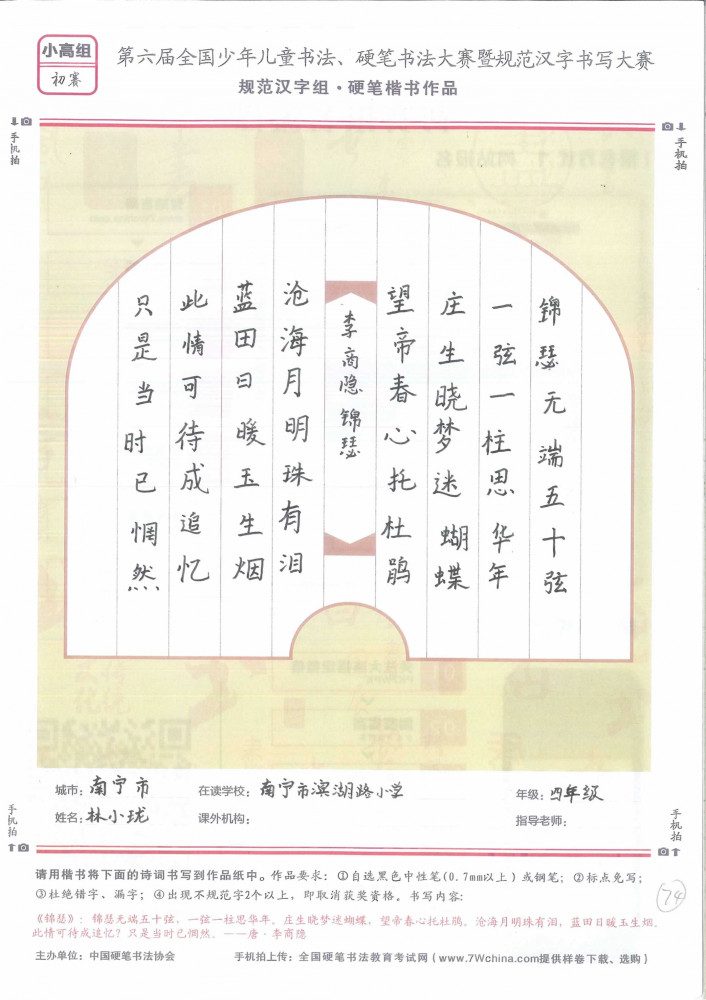 小高组
初赛
第六届全国少年儿童书法、硬笔书法大赛暨规范汉字书写大赛
规范汉字组·硬笔楷书作品
手机拍
手机拍
锦瑟无端五十弦
一弦一柱思华年
庄生晓梦迷蝴蝶
望帝春心托杜鹃
李商隐锦瑟
沧海月明珠有泪
蓝田日暖玉生烟
此情可待成追忆
只是当时已惘然
城市：南宁市 在读学校：南宁市滨湖路小学 年级：四年级
姓名：林小珑 课外机构： 指导老师：
手机拍
手机拍
请用楷书将下面的诗词书写到作品纸中。作品要求：①自选黑色中性笔(0.7mm以上)或钢笔；②标点免写；
③杜绝错字、漏字；④出现不规范字2个以上，即取消获奖资格。书写内容：
74
《锦瑟》：锦瑟无端五十弦，一弦一柱思华年。庄生晓梦迷蝴蝶，望帝春心托杜鹃。沧海月明珠有泪，蓝田日暖玉生烟。
此情可待成追忆？只是当时已惘然。——唐·李商隐
主办单位：中国硬笔书法协会 手机拍上传：全国硬笔书法教育考试网（www.7Wchina.com提供样卷下载、选购）